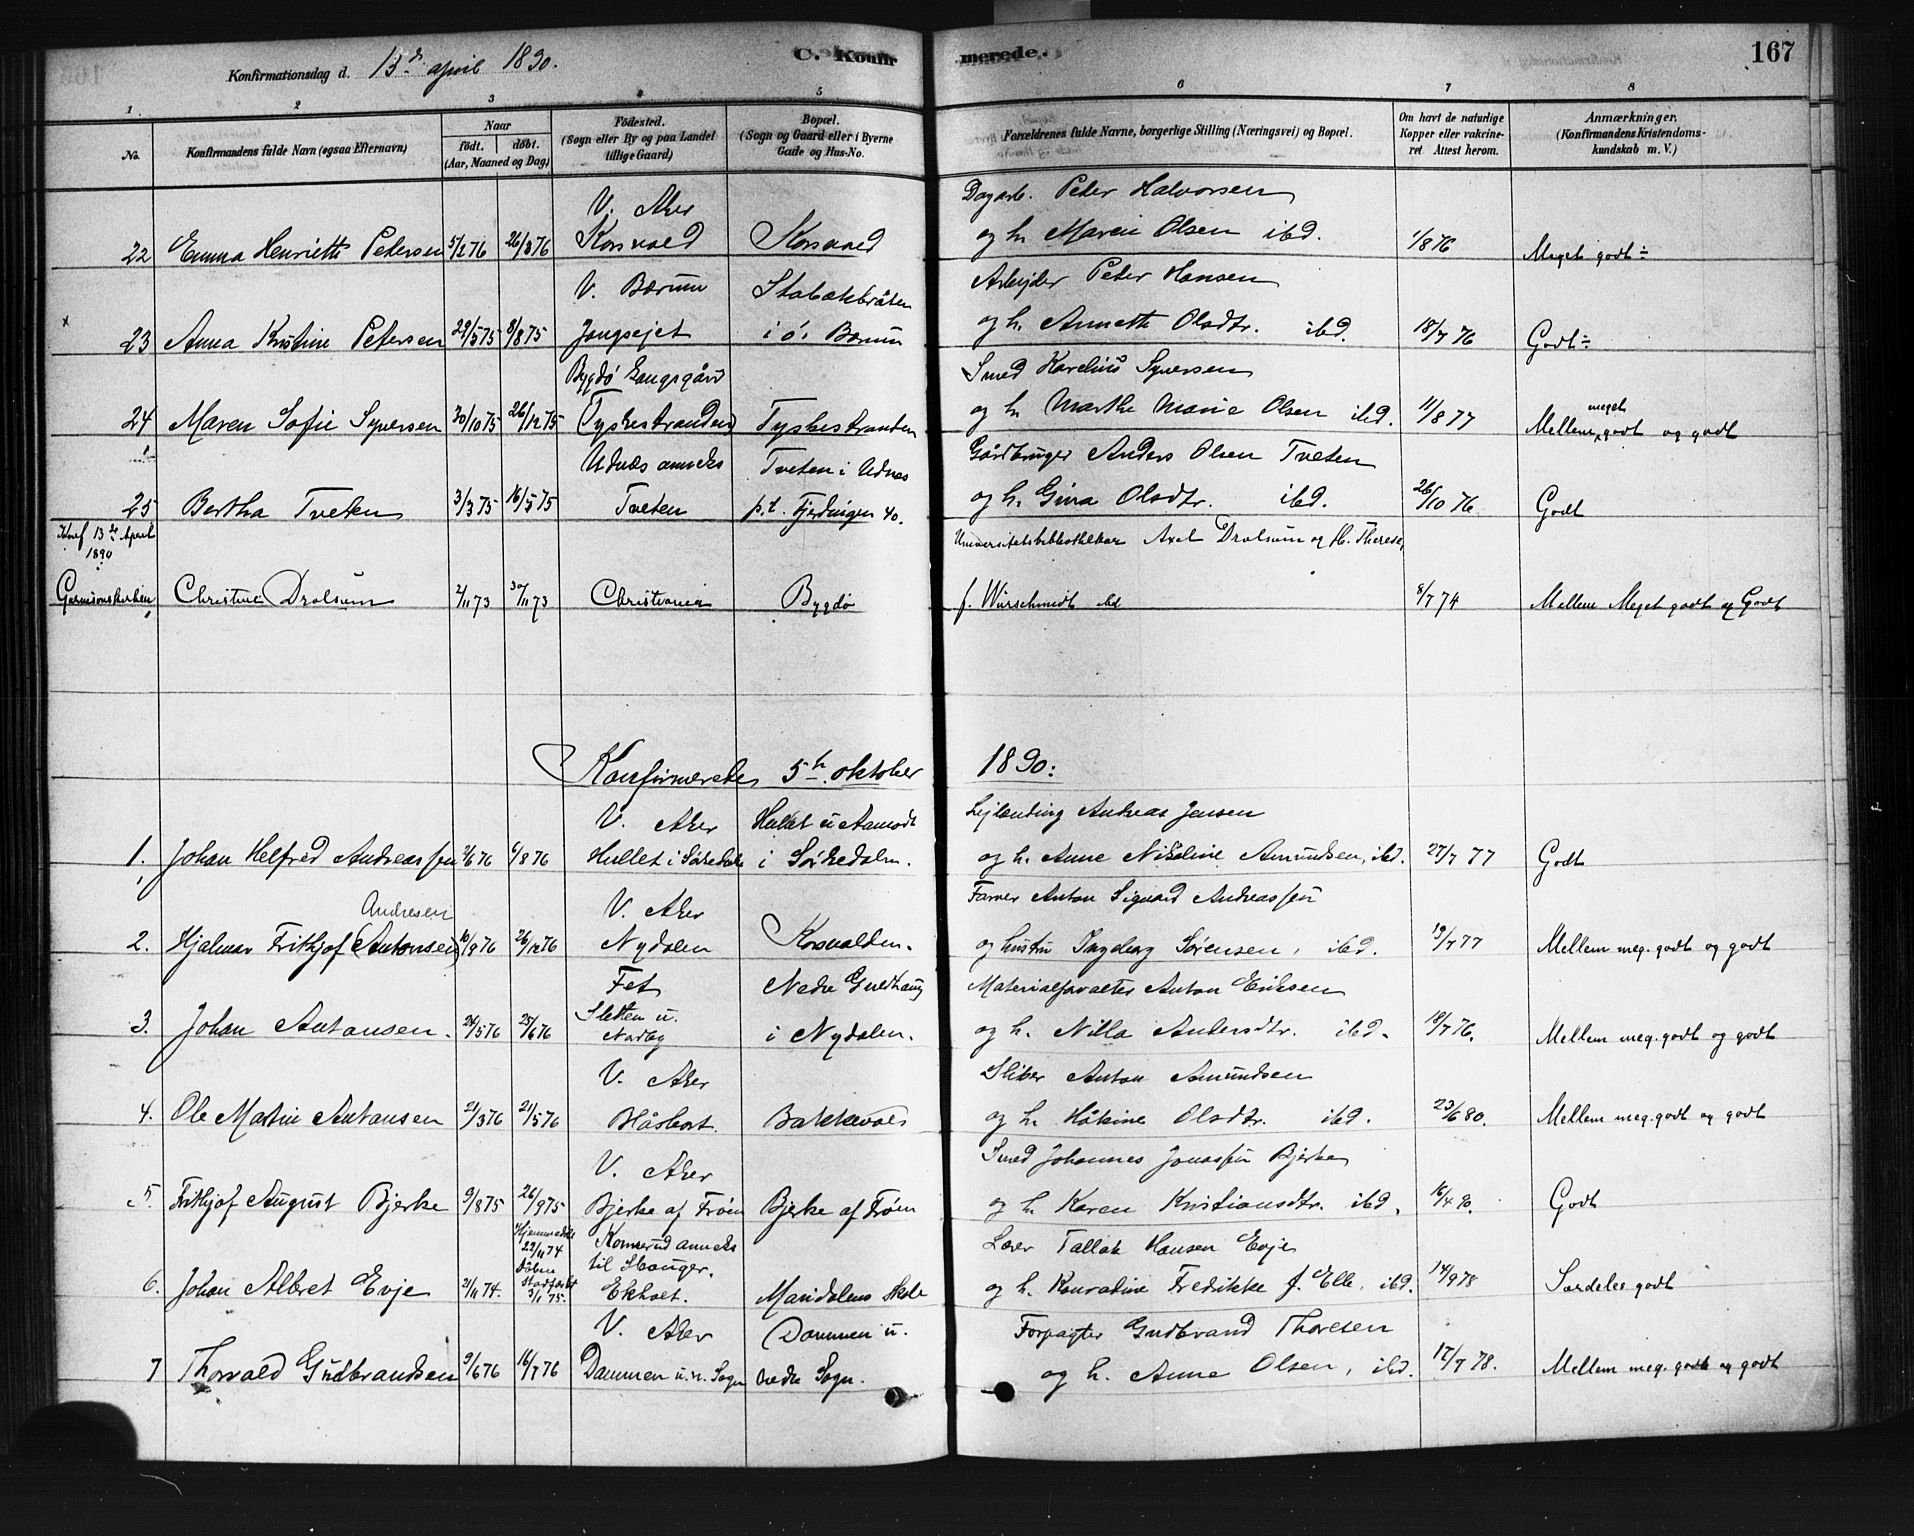 Konfirmationsdag d. 13de april 1890. C. Konfirmerede. 167
1 2 3 4 5 6 7 8
No. Konfirmandens fulde Navn (ogsaa Efternavn) Naar født. døbt. (Aar, Maaned og Dag) Fødested. (Sogn eller By og paa Landet tillige Gaard) Bopæl. (Sogn og Gaard eller i Byerne Gade og Hus-No. Forældrenes fulde Navne, borgerlige Stilling (Næringsvei) og Bopæl. Om havt de naturlige Kopper eller vakcineret Attest herom. Anmærkninger. (Konfirmandens Kristendomskundskab m. V.)
V. Aker Dagarb. Peter Halvorsen
22 Emma Henriette Petersen 5/2 76 26/3 76 Korsvold Korsvold og h. Maren Olsen ibd. 1/8 76 Meget godt ÷
V. Bærum Stabækbråten Arbejder Peter Hansen
x 23 Anna Kristine Petersen 29/5 75 8/8 75 Jongsejet i ø. Bærum og h. Annette Olsdtr. ibd. 18/7 76 Godt ÷
Bygdø Kongsgård Smed Karelius Syversen
24 Maren Sofie Syversen 30/10 75 26/12 75 (Tyskestranden) Tyskestranden og h. Marthe Marie Olsen ibd. 11/8 77 Mellem meget godt og godt
Udnæs anneks Tveten i Udnes Gårdbruger Anders Olsen Tveten
25 Bertha Tveten 3/3 75 16/5 75 Tveten p.t. Fjerdingen 40. og h. Gina Olsdtr. ibd. 26/10 76 Godt
Konf 13de April 1890 Universitetsbibliothekar Axel Drolsum og H. Therese,
Garnisonskirken Christine Drolsum 2/11 73 30/11 73 Christiania Bygdø f. Würschmidt ibd 8/7 74 Mellem Meget godt og Godt
Konfirmerede 5te oktober 1890:
V. Aker Hullet u Aamodt Lejlending Andreas Jensen
1. Johan Helfred Andreassen 2/6 76 6/8 76 Hullet i Sørkedale i Sørkedalen. og h. Anne Nikoline Amundsen, ibd. 27/7 77 Godt
Andresen V. Aker Farver Anton Sigvard Andreassen
2. Hjalmar Frithjof (Antonsen) 10/9 76 26/12 76 Nydalen Korsvolden. og hustru Ingeborg Sørensen, ibd. 19/7 77 Mellem meg. godt og godt
Fet Nedre Gullhaug Materialforvalter Anton Eriksen
3. Johan Antonsen. 24/5 76 25/6 76 Sletten u. Nordby i Nydalen. og h. Nilla Andersdtr. ibd. 18/7 76. Mellem meg. godt og godt
V. Aker Sliber Anton Amundsen
4. Ole Martin Antonsen 21/3 76 21/5 76 Blåsbort. Bakkevold og h. Håkine Olsdtr. ibd. 23/6 80. Mellem meg. godt og godt
V. Aker Smed Johannes Jonassen Bjerke
5. Frithjof August Bjerke 9/8 75 26/9 75 Bjerke af Frøen Bjerke af Frøen og h. Karen Kristiansdtr. ibd. 16/4 90. Godt
Hjemmedøbt 29/11 74 Komnerud anneks Lærer Tallak Hansen Evje
Dåben til Sbauger.
6. Johan Albret Evje 21/11 74. stadfæstet 3/1 75. Ekholt. Maridalens skole og h. Konradine Fredrikke f. Elle, ibd. 14/9 78 Særdeles godt
V. Aker Dammen u. Forpagter Gudbrand Thoresen
7 Thorvald Gudbrandsen 9/6 76 16/7 76 Dammen u. n. Sogn nedre Sogn. og h. Anne Olsen, ibd. 17/7 78. Mellem meg. godt og godt